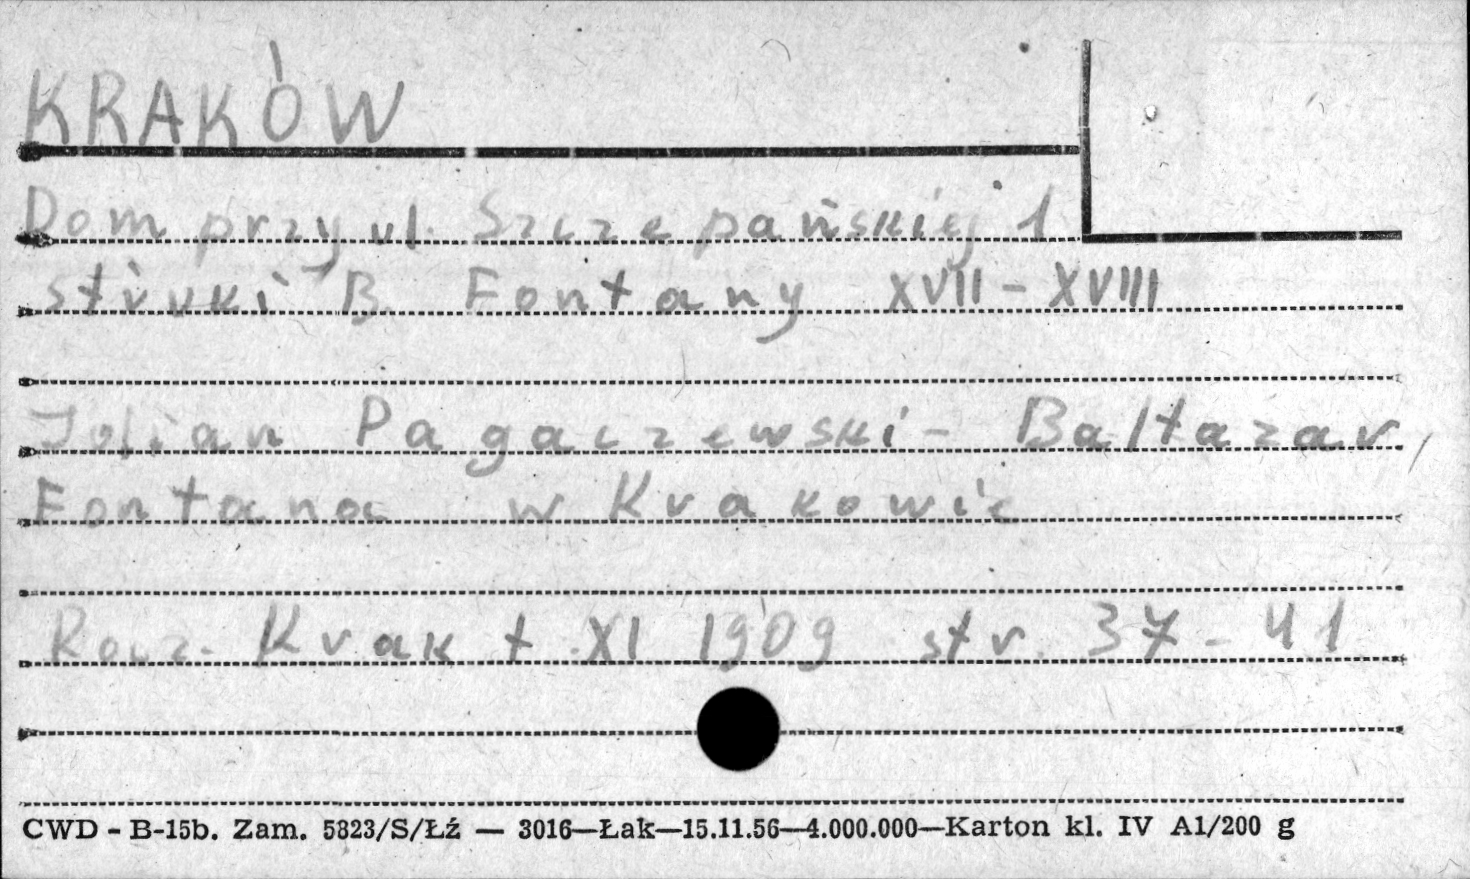 KRAKÓW
Dom przy ul. Szczepańskiej 1
stiuki B. Fontany XVII - XVIII
Julian Pagaczewski - Baltazar
Fontana w Krakowie
Rocz. Krak t. XI 1909 str. 37 - 41
CWD - B-15b. Zam. 5823/S/Łź — 3016—Łak—15.11.56—4.000.000—Karton kl. IV A1/200 g